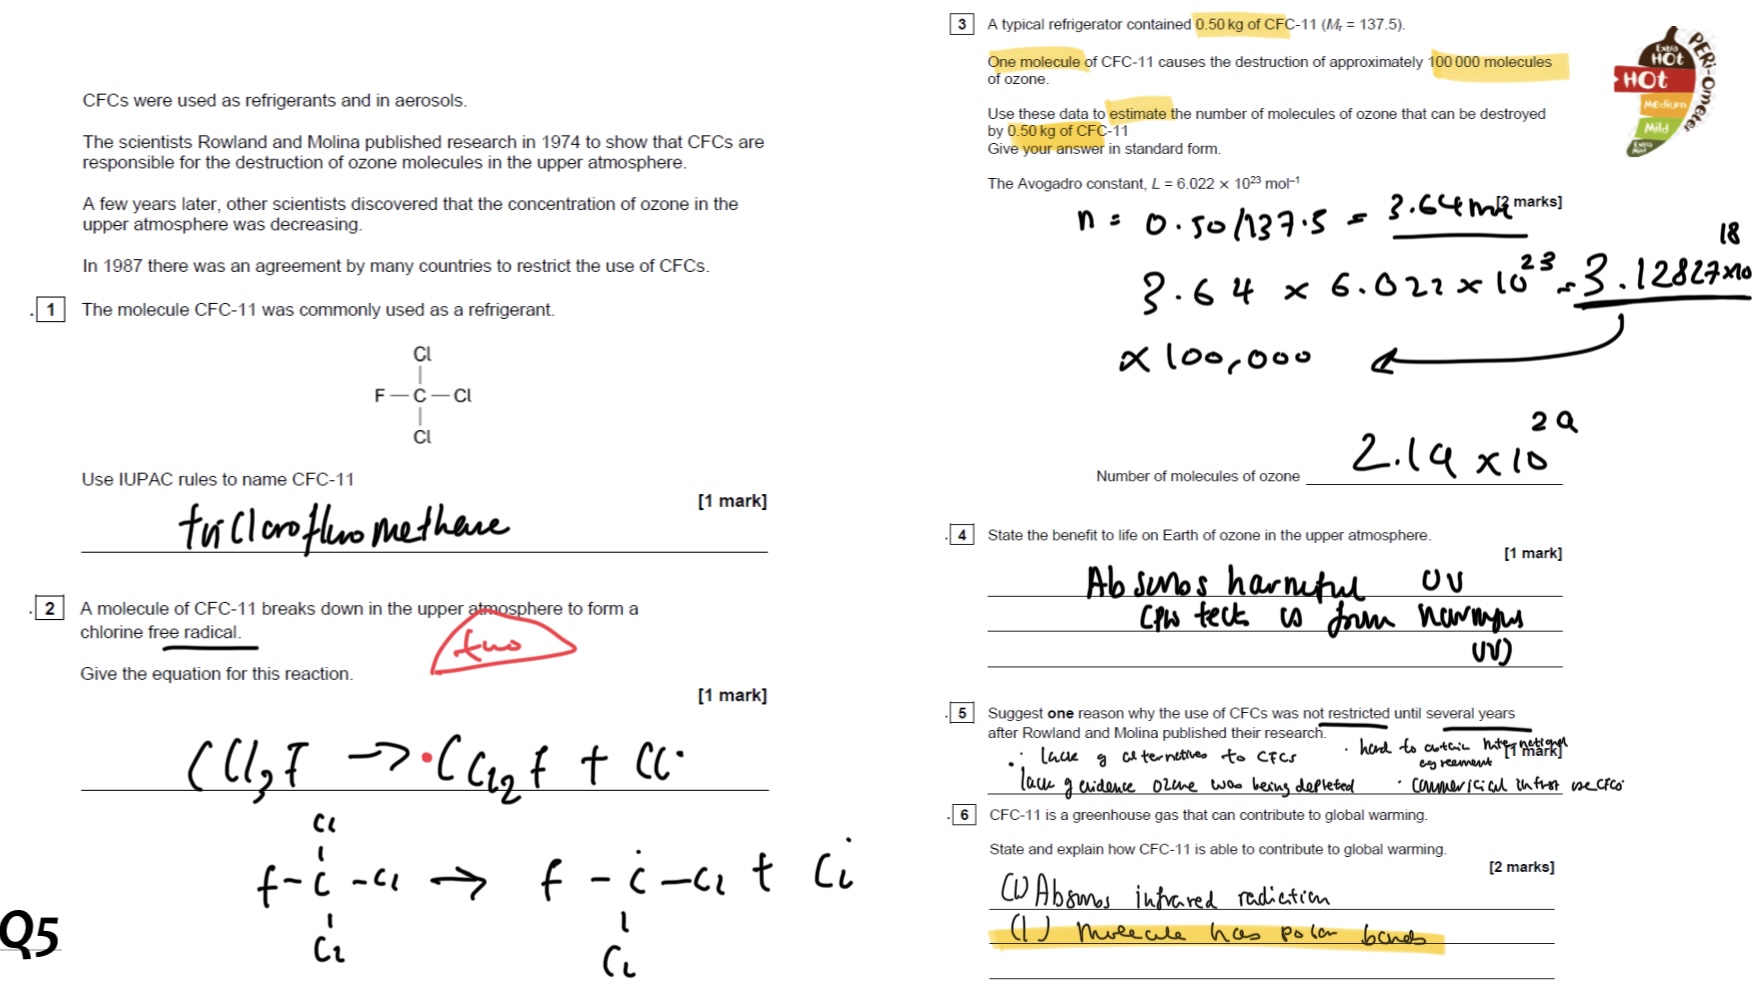 CFCs were used as refrigerants and in aerosols.
The scientists Rowland and Molina published research in 1974 to show that CFCs are
responsible for the destruction of ozone molecules in the upper atmosphere.
A few years later, other scientists discovered that the concentration of ozone in the
upper atmosphere was decreasing.
In 1987 there was an agreement by many countries to restrict the use of CFCs.
. 1 The molecule CFC-11 was commonly used as a refrigerant.
Cl
F — C — Cl
Cl
Use IUPAC rules to name CFC-11
[1 mark]
triclorofluromethane
. 2 A molecule of CFC-11 breaks down in the upper atmosphere to form a
chlorine free radical.
two
Give the equation for this reaction.
[1 mark]
CCl3F → •CCl2F + Cl•
Cl
F - C - Cl → F - C - Cl + Cl
Cl Cl
Q5
3 A typical refrigerator contained 0.50 kg of CFC-11 (Mr = 137.5).
One molecule of CFC-11 causes the destruction of approximately 100 000 molecules
of ozone.
Use these data to estimate the number of molecules of ozone that can be destroyed
by 0.50 kg of CFC-11
Give your answer in standard form.
The Avogadro constant, L = 6.022 × 10²³ mol⁻¹
[2 marks]
n = 0.50/137.5 = 3.64
3.64 × 6.022 × 10²³ = 3.12827 × 10¹⁸
× 100,000
Number of molecules of ozone 2.19 × 10²⁹
. 4 State the benefit to life on Earth of ozone in the upper atmosphere.
[1 mark]
Absorbs harmful UV
(protects us from UV)
. 5 Suggest one reason why the use of CFCs was not restricted until several years
after Rowland and Molina published their research.
[1 mark]
· lack of alternatives to CFCs
· hard to obtain international
agreement
lack of evidence ozone was being depleted
· commercial use CFCs
. 6 CFC-11 is a greenhouse gas that can contribute to global warming.
State and explain how CFC-11 is able to contribute to global warming.
[2 marks]
(1) Absorbs infrared radiation
(1) Molecule has polar bonds
PERi-Ometer
Extra HOt
HOt
Medium
Mild
Extra Mild